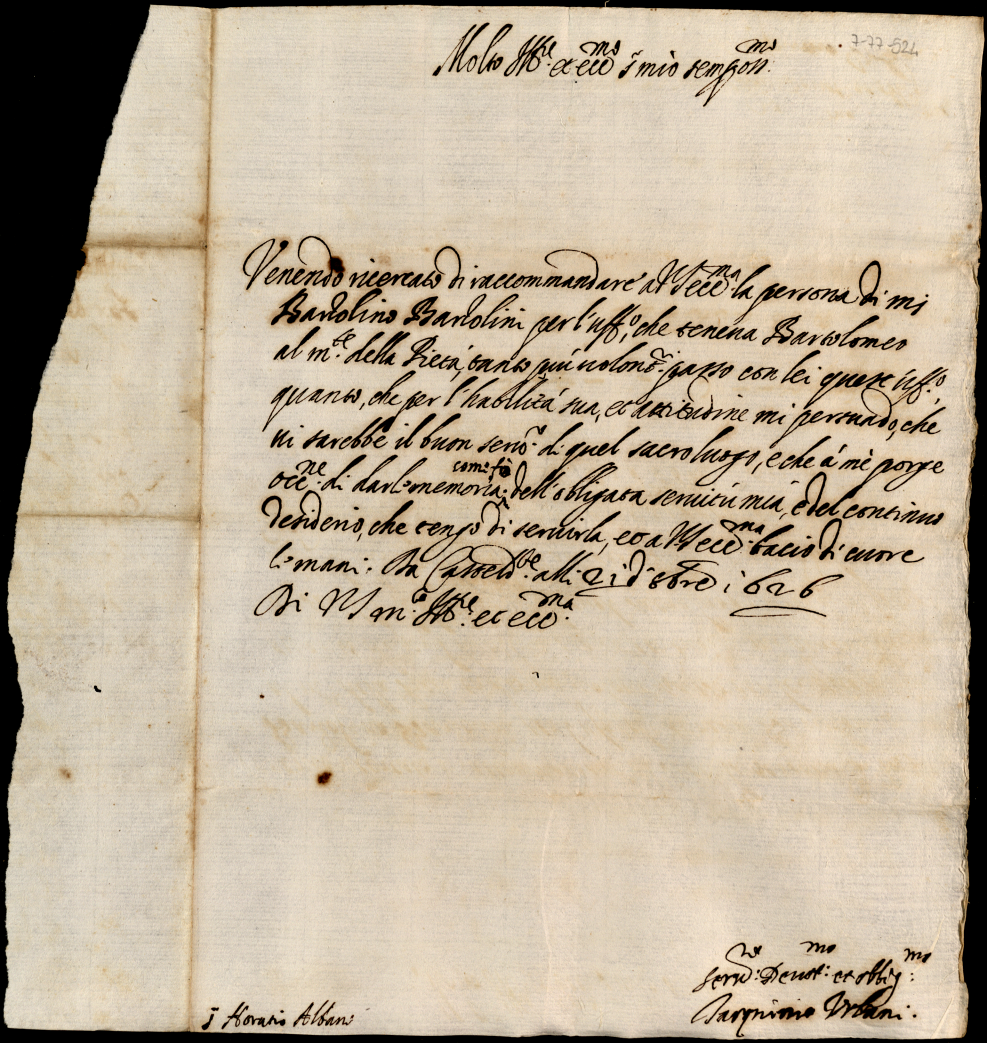 7-77-524
Molto Ill:re et ecc:mo s:r mio sempre oss:mo
Venendo ricercato di raccommandare à VS ecc:ma la persona di mr
Bartolino Bartolini per l'uff:o, che teneua Bartolomeo
al m:te della Pietà, tanto più uolont:ri passo con lei questo uff:o,
quanto, che per l'habilità sua, et attitudine mi persuado, che
ui sarebbe il buon seru:o di quel sacro luogo, e che à mè porge
occ:ne di darle memoria, com: fò dell'obligata seruitù mia, e del continuo
desiderio, che tengo di seruirla, et a VS ecc:ma bacio di cuore
le mani. Da Casteld:te alli 21 d'8bre 1626
Di VS m:o Ill:re et ecc:ma
Seru:re Deuot:mo et obblig:mo
Vrbani.
s:r Horatio Albani